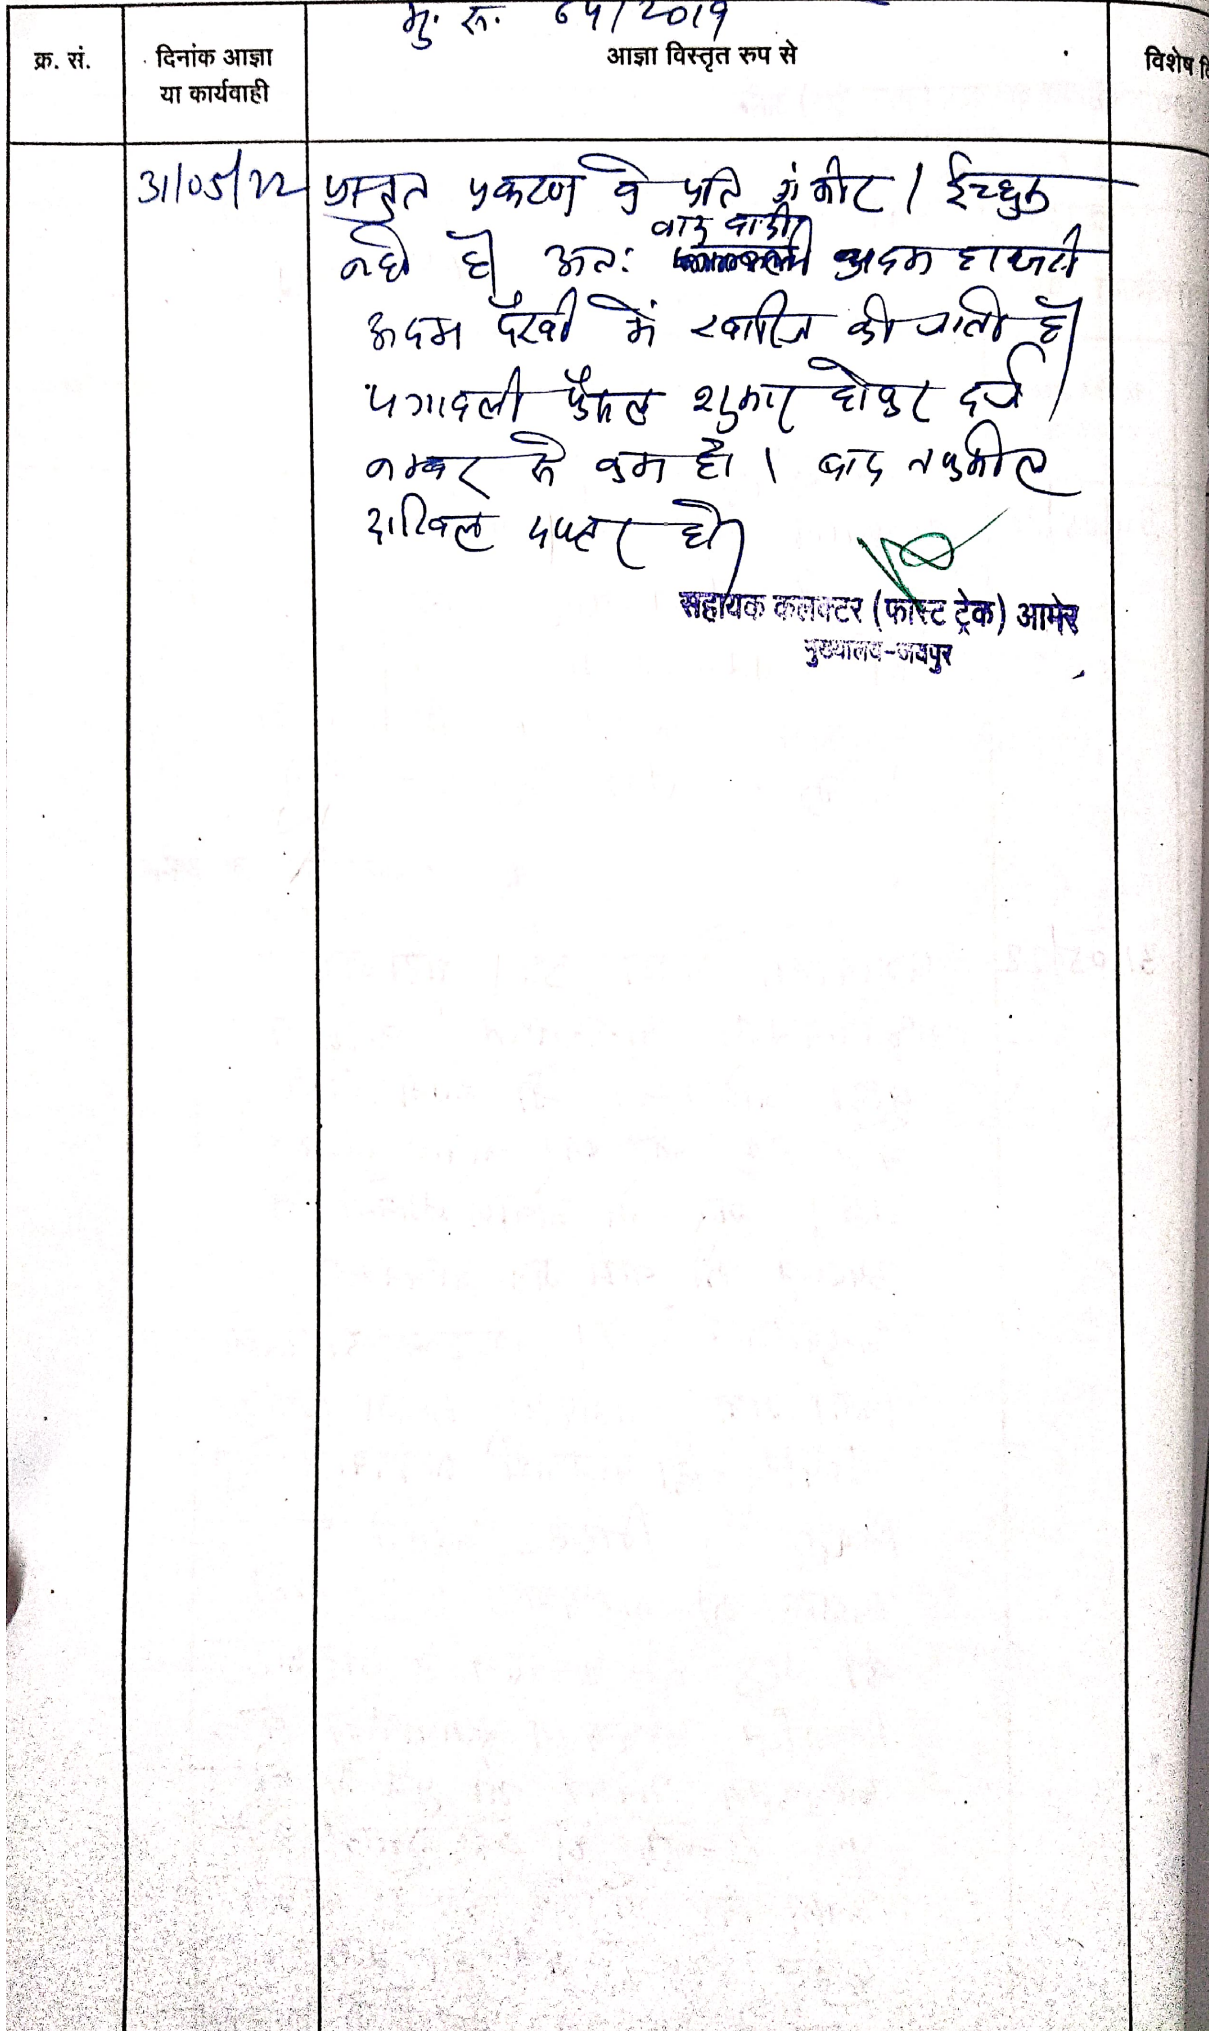 मु. रू. 64/2019
क्र. सं.
दिनांक आज्ञा
या कार्यवाही
आज्ञा विस्तृत रूप से
विशेष
31/05/22 प्रस्तुत प्रकरण के प्रति गंभीर / ईच्छुक
वाद वादी
नही है। अतः अदम हाजरी
अदम पैरवी में खारिज की जाती है।
पत्रावली फैसल शुमार होकर दर्ज
नम्बर से कम हो। बाद तकमील
दाखिल दफ्तर हो।
सहायक कलक्टर (फास्ट ट्रेक) आमेर
मुख्यालय-जयपुर